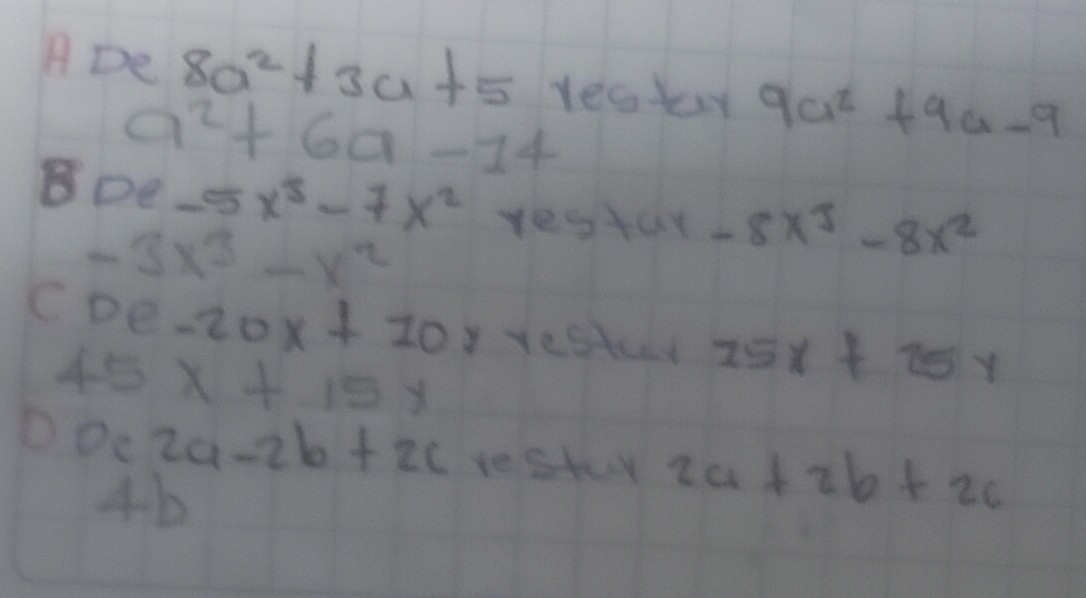 A De 8a² + 3a + 5 restar 9a² + 9a - 9
a² + 6a - 14
B De -5x³ - 7x² restar -8x³ - 8x²
-3x³ - x²
C De -20x + 10y restar 25x + 25y
45x + 15y
D De 2a - 2b + 2c restar 2a + 2b + 2c
4b